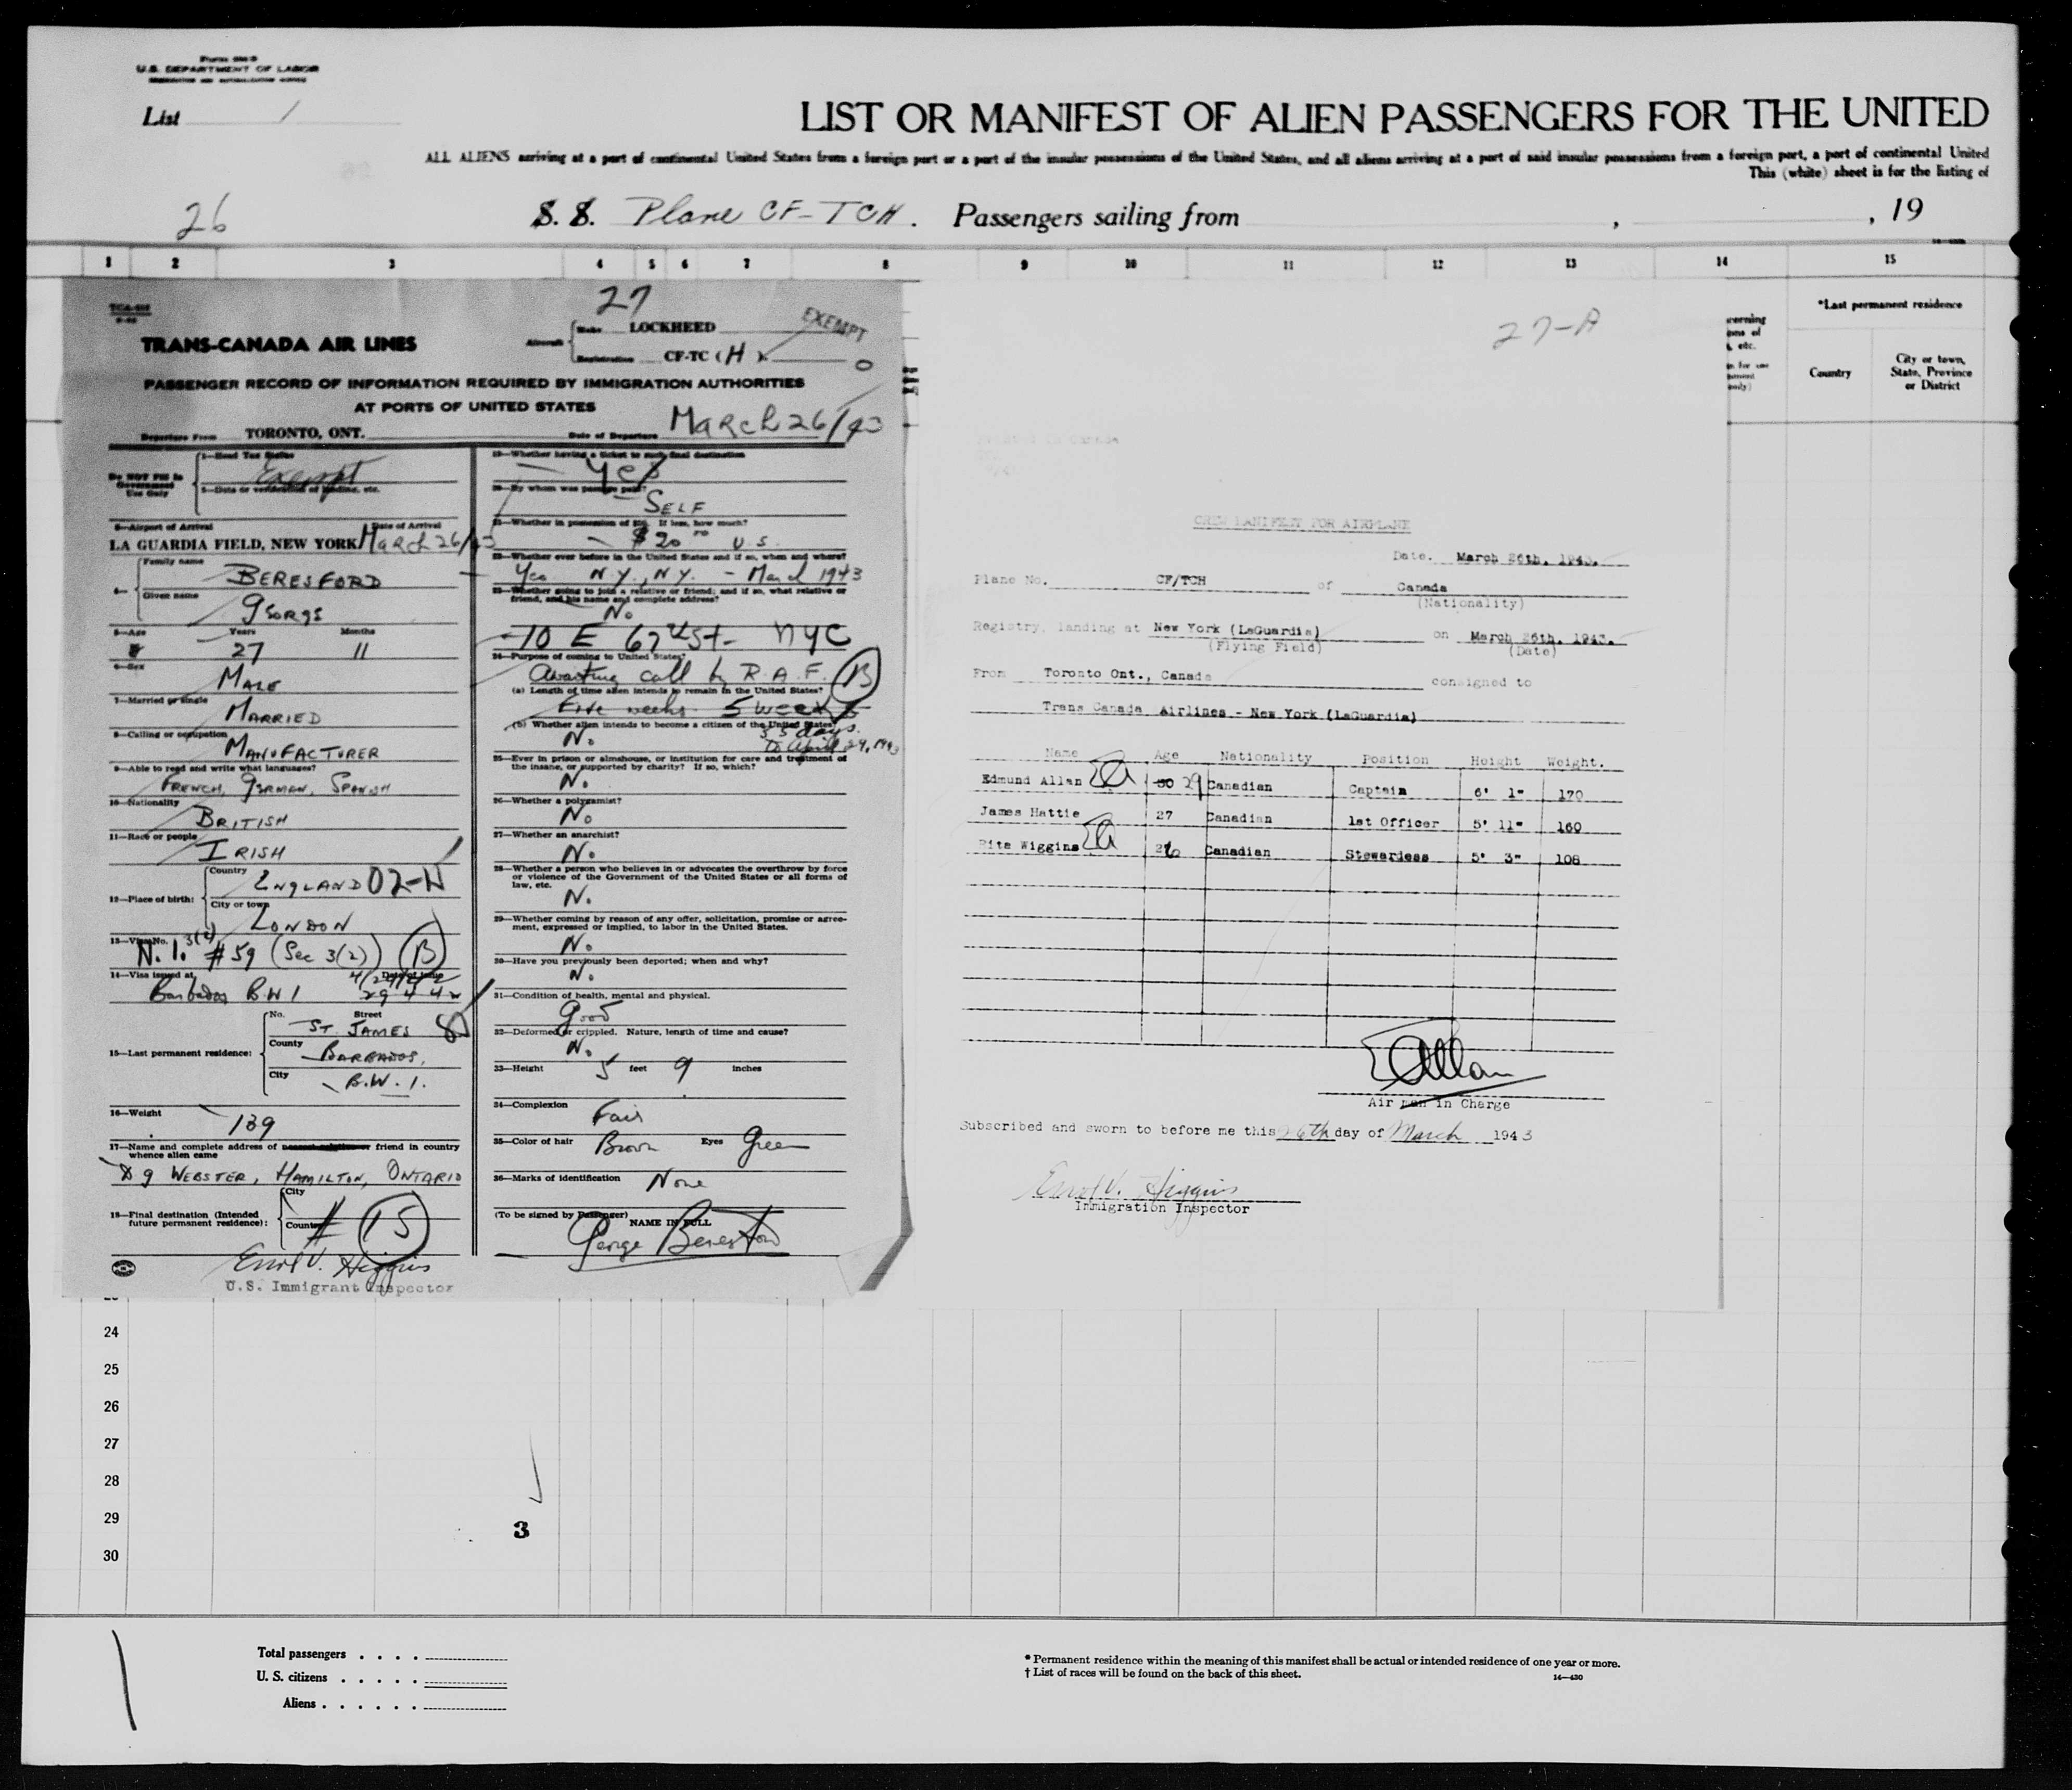 U.S. DEPARTMENT OF LABOR
List 1
LIST OR MANIFEST OF ALIEN PASSENGERS FOR THE UNITED
ALL ALIENS arriving at a port of continental United States from a foreign port or a port of the insular possessions of the United States, and all aliens arriving at a port of said insular possessions from a foreign port, a port of continental United
This (white) sheet is for the listing of
26
S. S. Plane CF-TCH. Passengers sailing from , , 19
1 2 3 4 5 6 7 8 9 10 11 12 13 14 15
27
TRANS-CANADA AIR LINES
Aircraft Make LOCKHEED
Registration CF-TC (H)
EXEMPT
PASSENGER RECORD OF INFORMATION REQUIRED BY IMMIGRATION AUTHORITIES
AT PORTS OF UNITED STATES
Departure From TORONTO, ONT. Date of Departure March 26/43
Do NOT Fill In Government Use Only
1—Head Tax Status
Exempt
3—Airport of Arrival Date of Arrival
LA GUARDIA FIELD, NEW YORK March 26/43
4— Family name BERESFORD
Given name GEORGE
5—Age Years 27 Months 11
6—Sex
MALE
7—Married or single
MARRIED
8—Calling or occupation
MANUFACTURER
9—Able to read and write what languages?
FRENCH, GERMAN, SPANISH
10—Nationality
BRITISH
11—Race or people
IRISH
12—Place of birth: Country ENGLAND 02-N
City or town LONDON
13—Visa No.
N.I. 3(2) #59 (Sec 3(2)) B
14—Visa issued at Date of Issue
Barbados B.W.I
15—Last permanent residence:
No. Street
ST. JAMES
County
BARBADOS,
City
B.W.I.
16—Weight
139
17—Name and complete address of nearest relative or friend in country
whence alien came
D G WEBSTER, HAMILTON, ONTARIO
18—Final destination (Intended
future permanent residence):
City
Country
15
Errol V. Higgins
U.S. Immigrant Inspector
19—Whether having a ticket to such final destination
Yes
20—By whom was passage paid?
SELF
21—Whether in possession of $50. If less, how much?
$20 00 U.S.
22—Whether ever before in the United States and if so, when and where?
Yes N.Y., N.Y. - March 1943
23—Whether going to join a relative or friend; and if so, what relative or
friend, and his name and complete address?
No
10 E 67th St - NYC
24—Purpose of coming to United States?
Awaiting call by R.A.F. B
(a) Length of time alien intends to remain in the United States?
Five weeks 5 weeks
(b) Whether alien intends to become a citizen of the United States
No
to April 29, 1943
25—Ever in prison or almshouse, or institution for care and treatment of
the insane, or supported by charity? If so, which?
No
26—Whether a polygamist?
No
27—Whether an anarchist?
No
28—Whether a person who believes in or advocates the overthrow by force
or violence of the Government of the United States or all forms of
law, etc.
No
29—Whether coming by reason of any offer, solicitation, promise or agree-
ment, expressed or implied, to labor in the United States.
No
30—Have you previously been deported; when and why?
No
31—Condition of health, mental and physical.
Good
32—Deformed or crippled. Nature, length of time and cause?
No
33—Height 5 feet 9 inches
34—Complexion
Fair
35—Color of hair Brown Eyes Green
36—Marks of identification None
(To be signed by Passenger)
NAME IN FULL
George Beresford
27-A
CREW MANIFEST FOR AIRPLANE
Date. March 26th, 1943.
Plane No. CF/TCH of Canada
(Nationality)
Registry, landing at New York (LaGuardia) on March 26th, 1943.
(Flying Field) (Date)
From Toronto Ont., Canada consigned to
Trans Canada Airlines - New York (LaGuardia)
Name Age Nationality Position Height Weight.
Edmund Allan EA 30 29 Canadian Captain 6' 1" 170
James Hattie 27 Canadian 1st Officer 5' 11" 160
Rita Wiggins EA 26 Canadian Stewardess 5' 3" 108
EAllan
Air man in Charge
Subscribed and sworn to before me this 26th day of March 1943
Errol V. Higgins
Immigration Inspector
*Last permanent residence
Country
City or town,
State, Province
or District
24
25
26
27
28
29
30
3
Total passengers
U. S. citizens
Aliens
* Permanent residence within the meaning of this manifest shall be actual or intended residence of one year or more.
† List of races will be found on the back of this sheet.
14—430